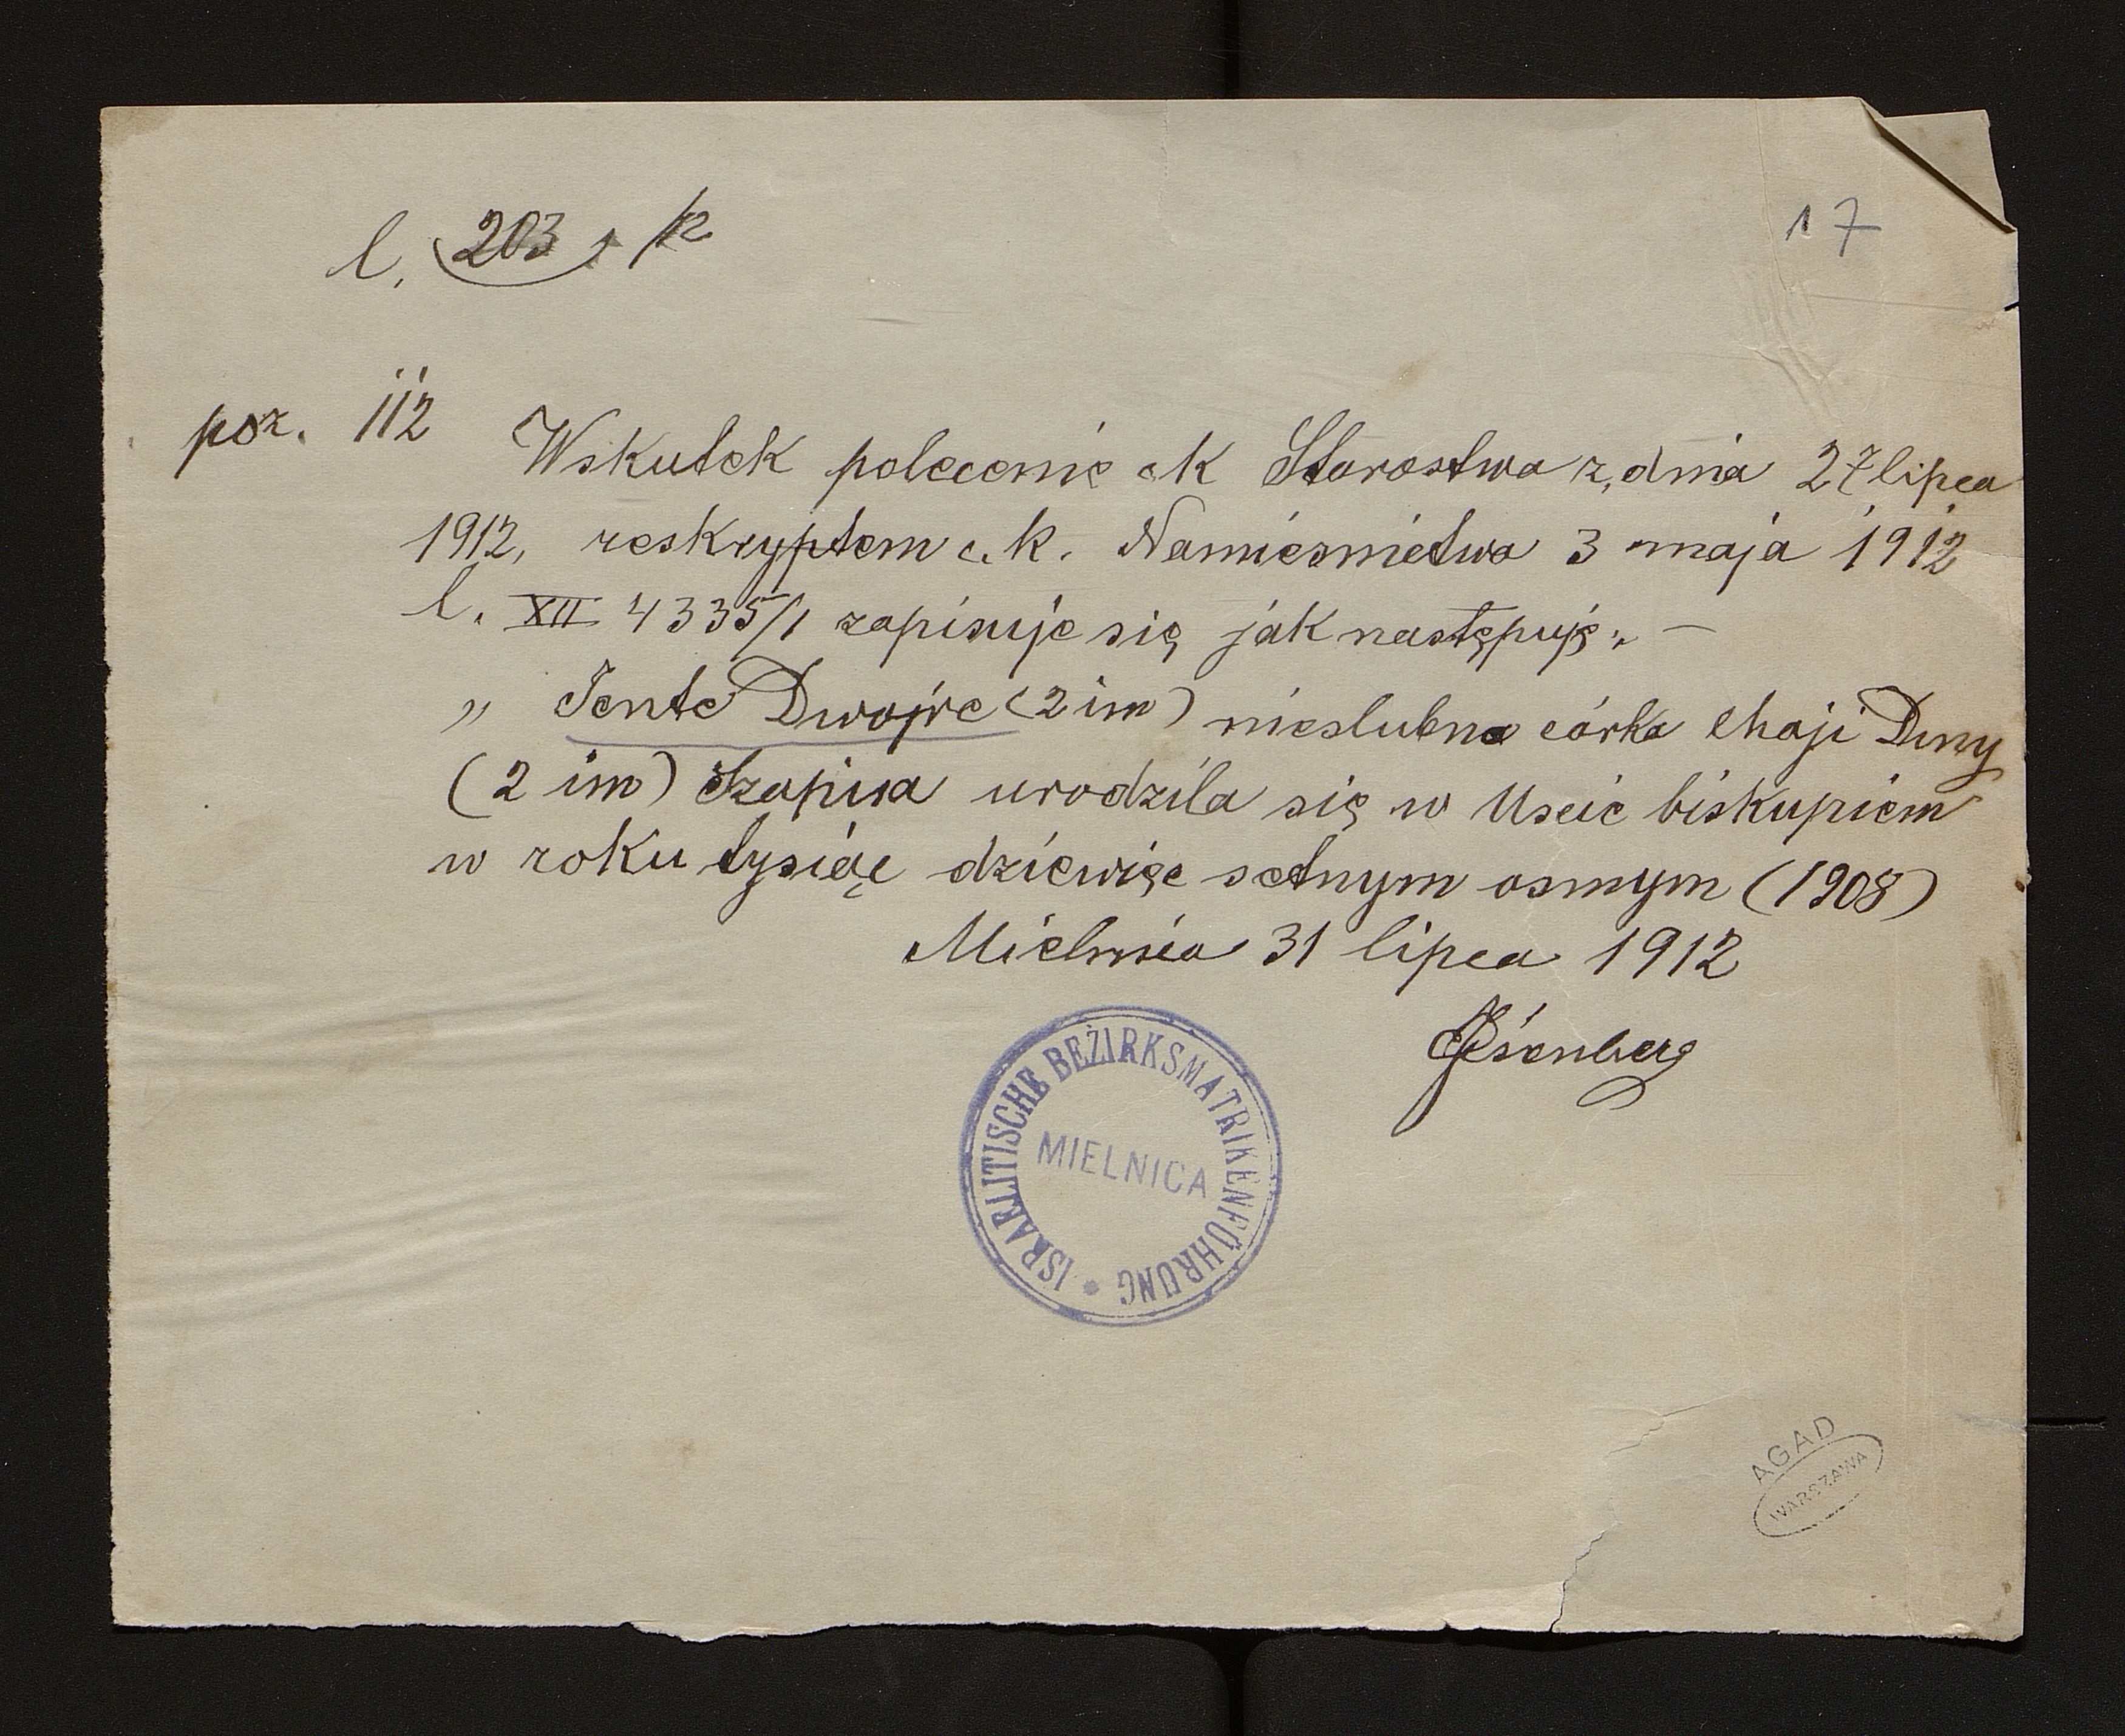 l. 203 /12
17
poz. 112 Wskutek polecenie c k Starostwa z dnia 27 lipca
1912, reskryptem c. k. Namiesnictwa 3 maja 1912
l. XII 4335/1 zapisuje się jak następuję: —
" Jente Dwojre (2 im) nieslubna córka Chaji Diny
(2 im) Szapira urodzila się w Uscie biskupiem
w roku tysiąc dziewięc setnym osmym (1908)
Mielnica 31 lipca 1912
ISRAELITISCHE BEZIRKSMATRIKENFÜHRUNG
MIELNICA
AGAD
WARSZAWA